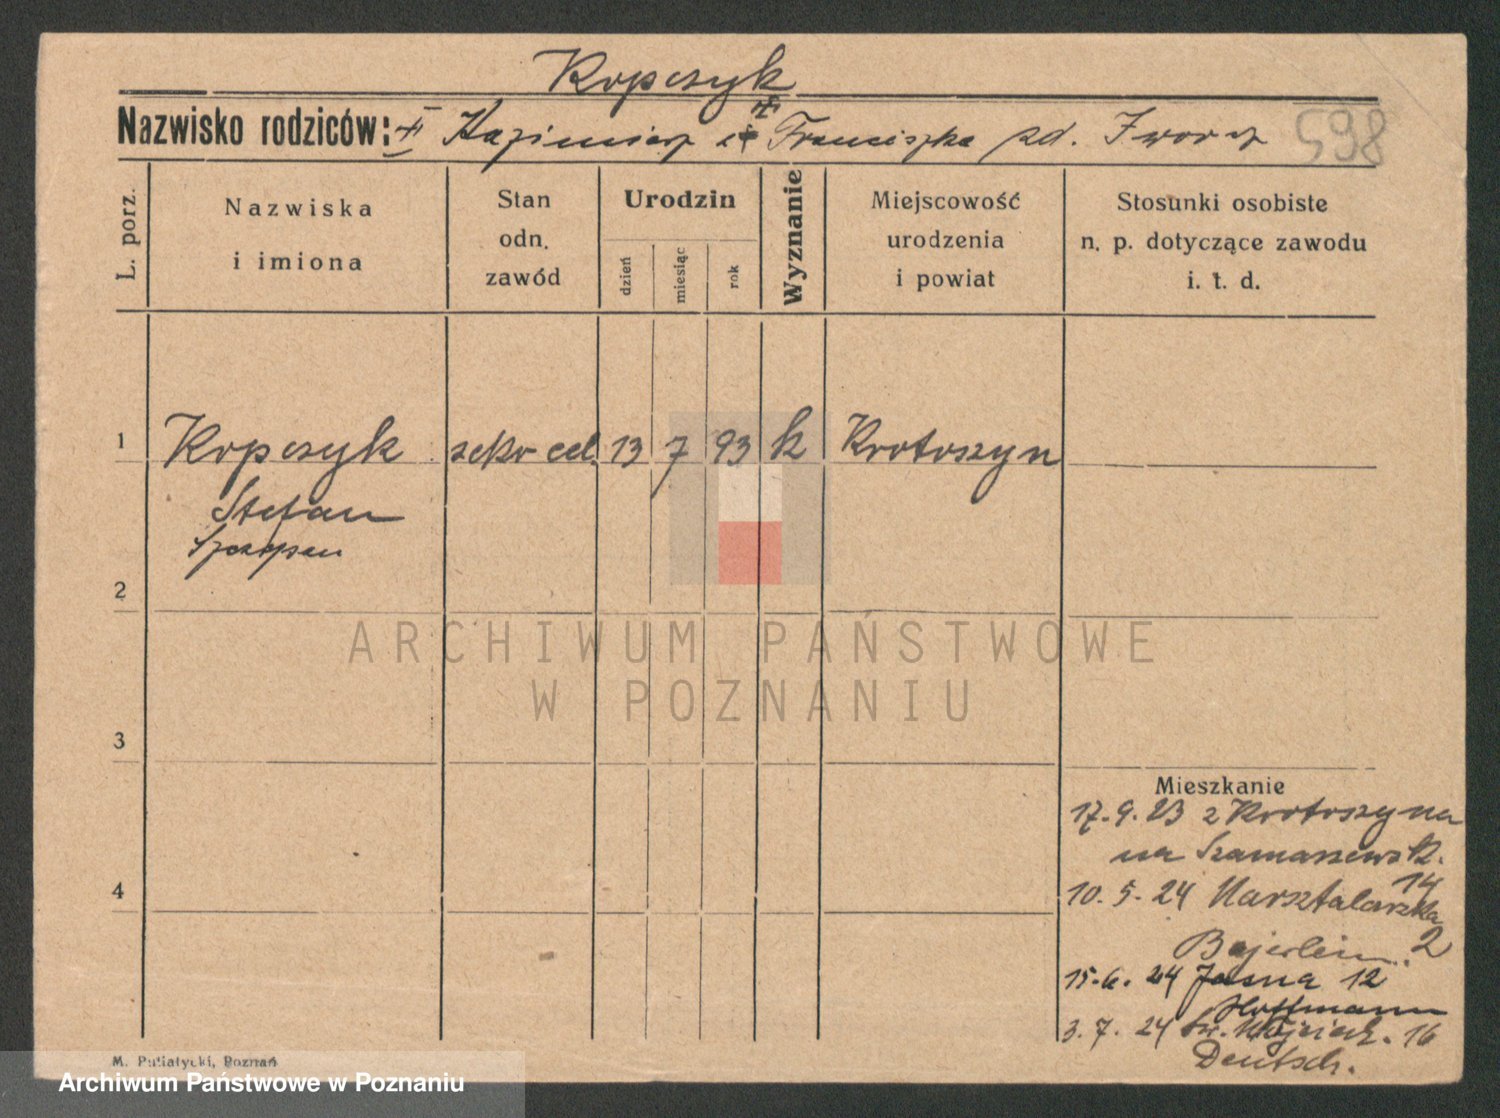 Kopczyk
Nazwisko rodziców: Kazimierz i Franciszka zd.
598
L. porz.
Nazwiska
i imiona
Stan
odn.
zawód
Urodzin
dzień
miesiąc
rok
Wyznanie
Miejscowość
urodzenia
i powiat
Stosunki osobiste
n. p. dotyczące zawodu
i. t. d.
1
Kopczyk
13 7 93 k Krotoszyn
Stefan
Szczepan
2
ARCHIWUM PAŃSTWOWE
W POZNANIU
3
Mieszkanie
17.9.23 z Krotoszyna
na Szamarzewsk.
14
4
10.5.24 Masztalarska
2
Bajerlein
15.6.24 Jasna 12
Hoffmann
3.7.24 św. Wojciech. 16
Deutsch.
M. Putiatycki, Poznań
Archiwum Państwowe w Poznaniu